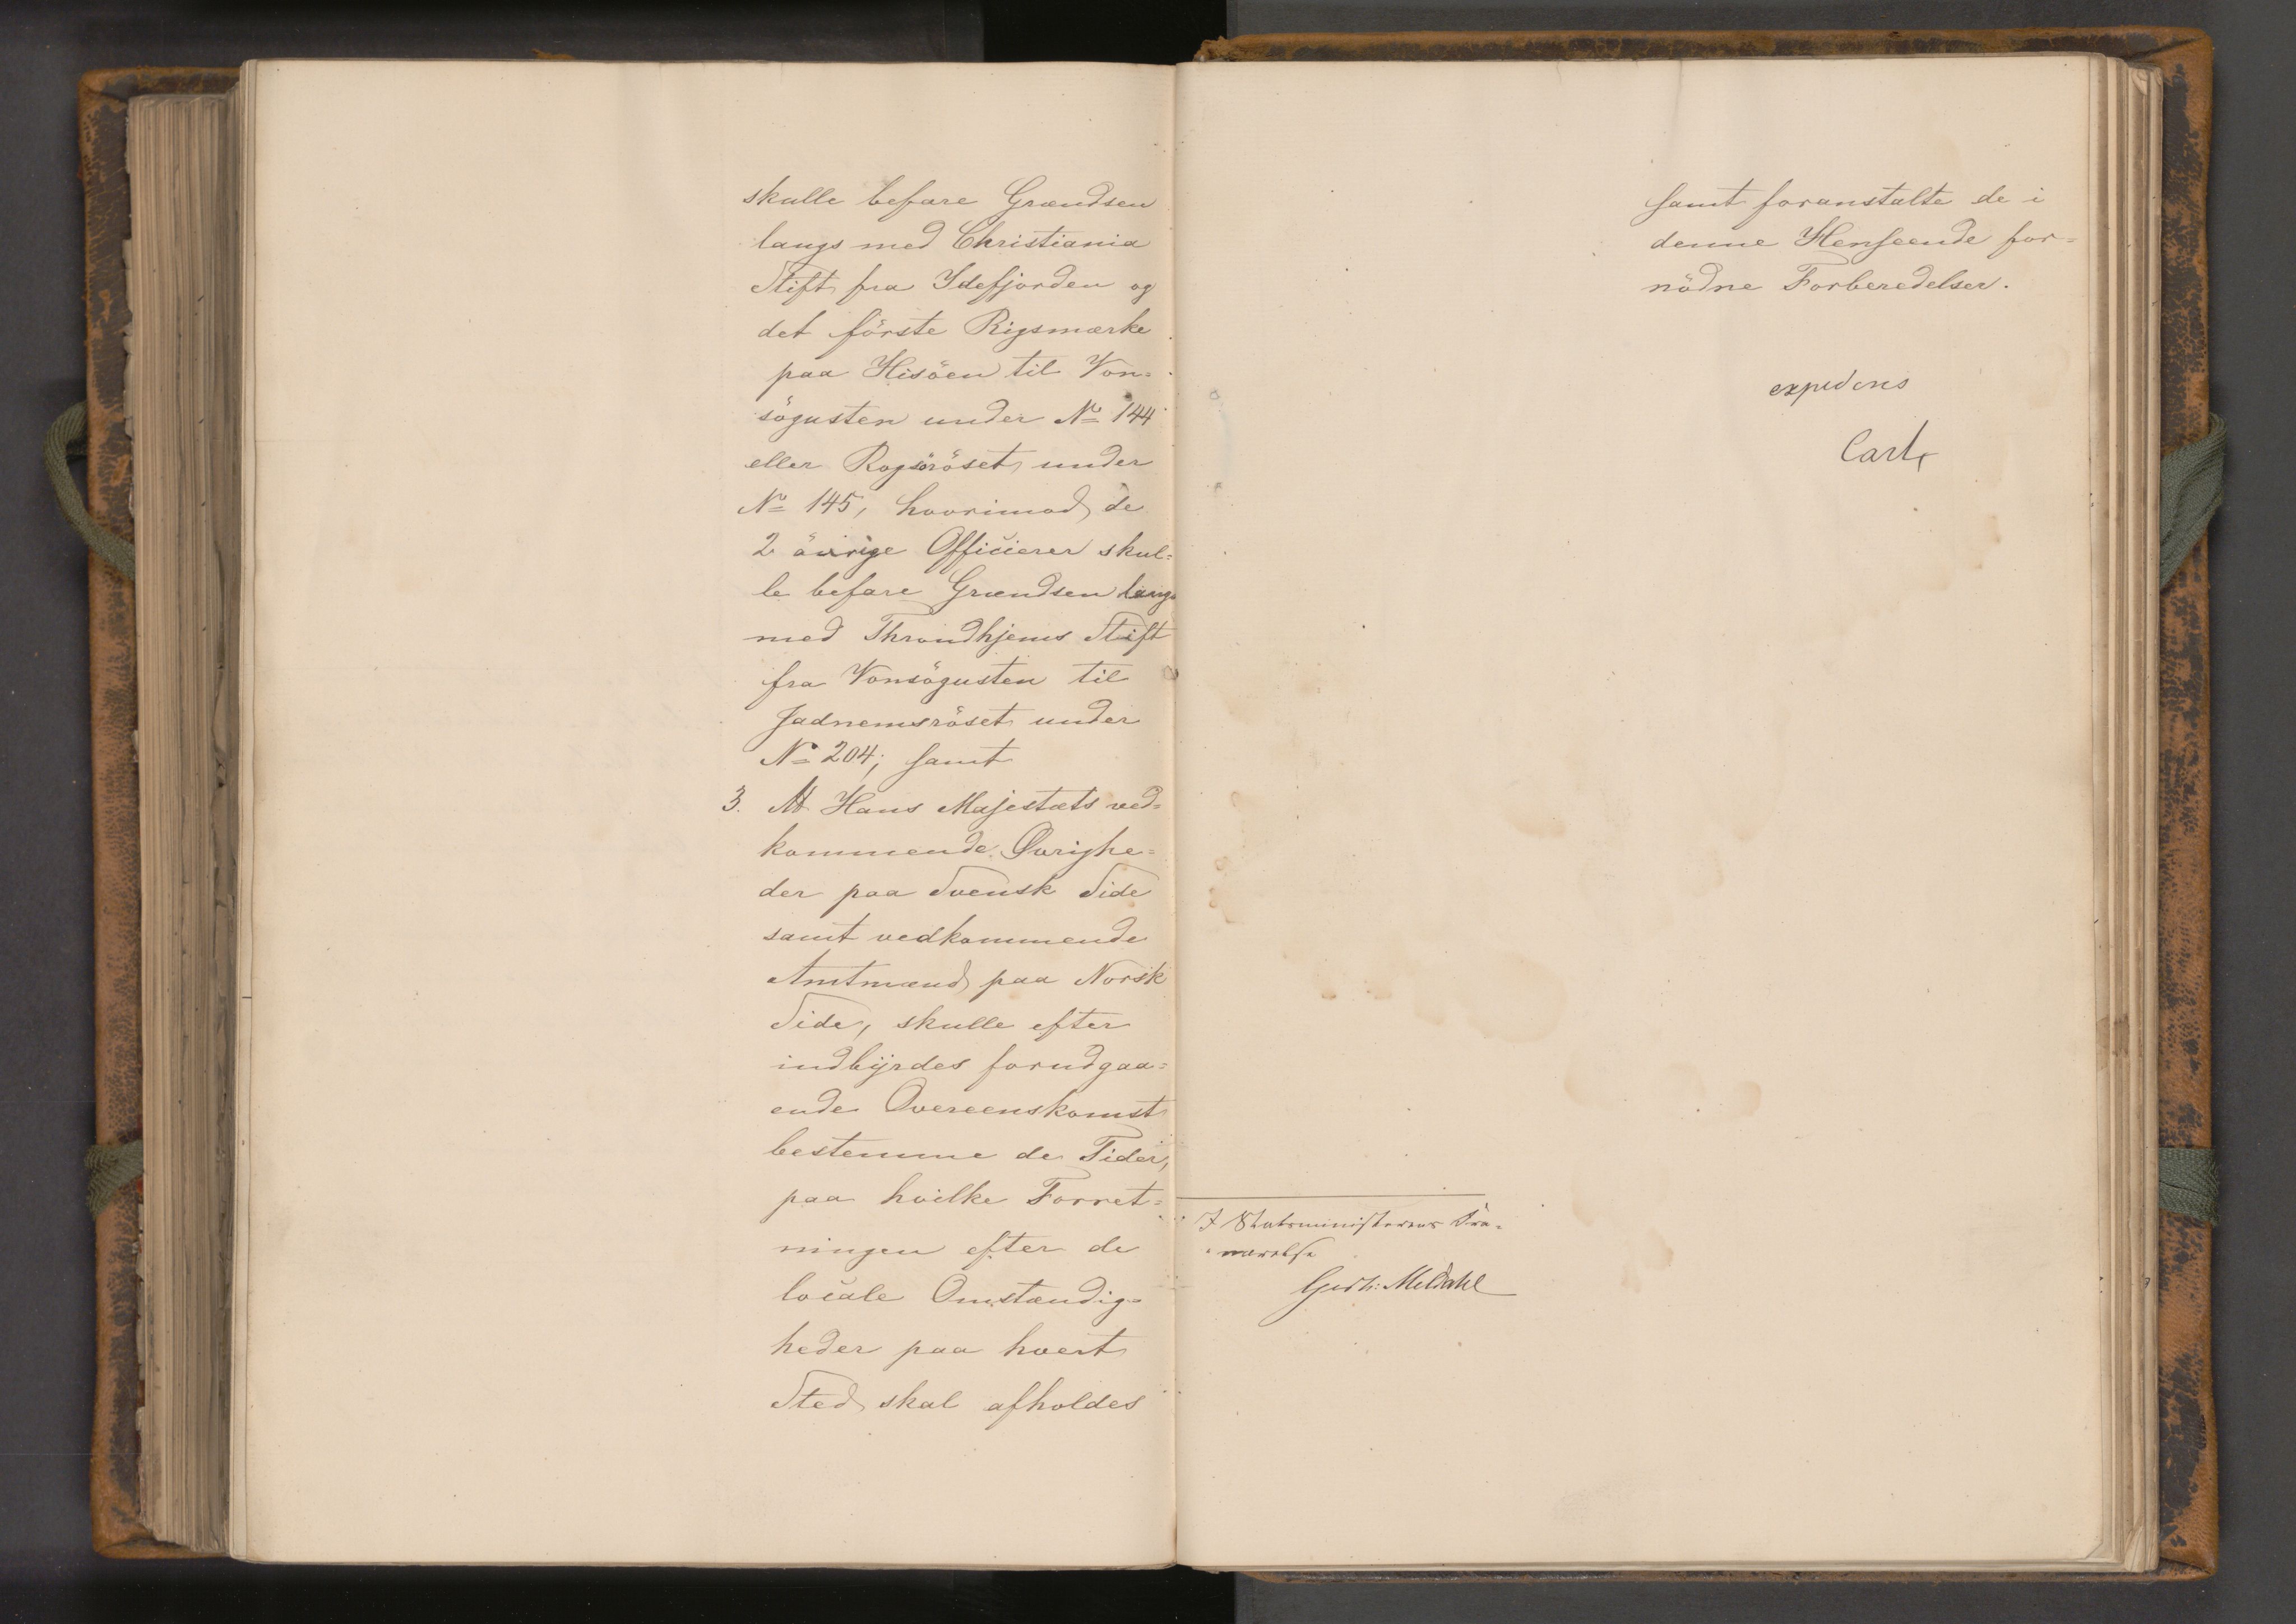 skulle befare Grændsen
langs med Christiania
Stift fra Idefjorden og
det förste Rigsmærke
paa Hisöen til Von=
sögusten under No 144
eller Rogsöröset under
No 145, hvorimod de
2 övrige Officierer skul=
le befare Grændsen langs
med Throndhjems Stift
fra Vonsögusten til
Jadnemsröset under
No 204; samt
3. At Hans Majestæts ved=
kommende Øvrighe=
der paa Svensk Side
samt vedkommende
Amtmænd paa Norsk
Side, skulle efter
indbÿrdes forudgaa=
ende Overeenskomst
bestemme de Tider,
paa hvilke Forret=
ningen efter de
locale Omstændig=
heder paa hvert
Sted skal afholdes
samt foranstalte de i
denne Henseende for=
nödne Forberedelser.
expideres
Carl
I Statsministerens Fra=
værelse
Gerh: Meldahl